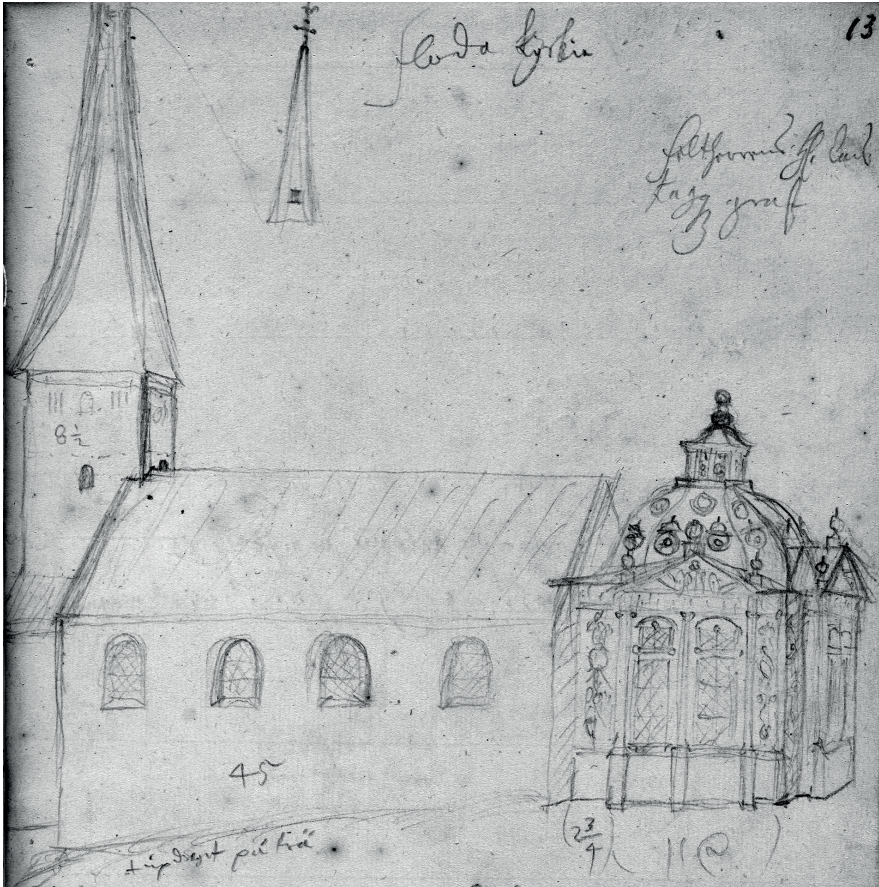 13
floda kyrkia
feltherrens H. Carls
Kagg graf
8½
45
på trä
2¾
11